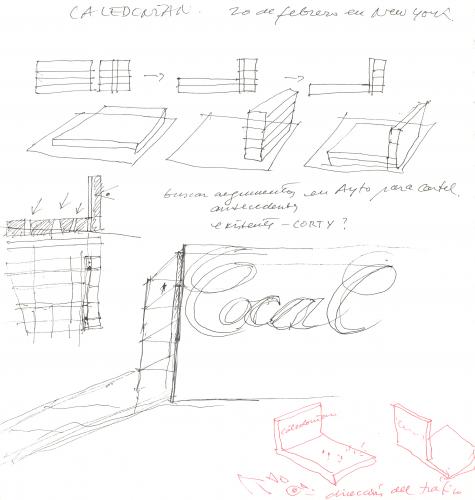 CALEDONIAN. 20 de febrero en New York.
buscar argumentos en Ayto para cartel.
antecedentes
existentes - CORTY?
Coca C
Caledonian
NO
dirección del tráfico